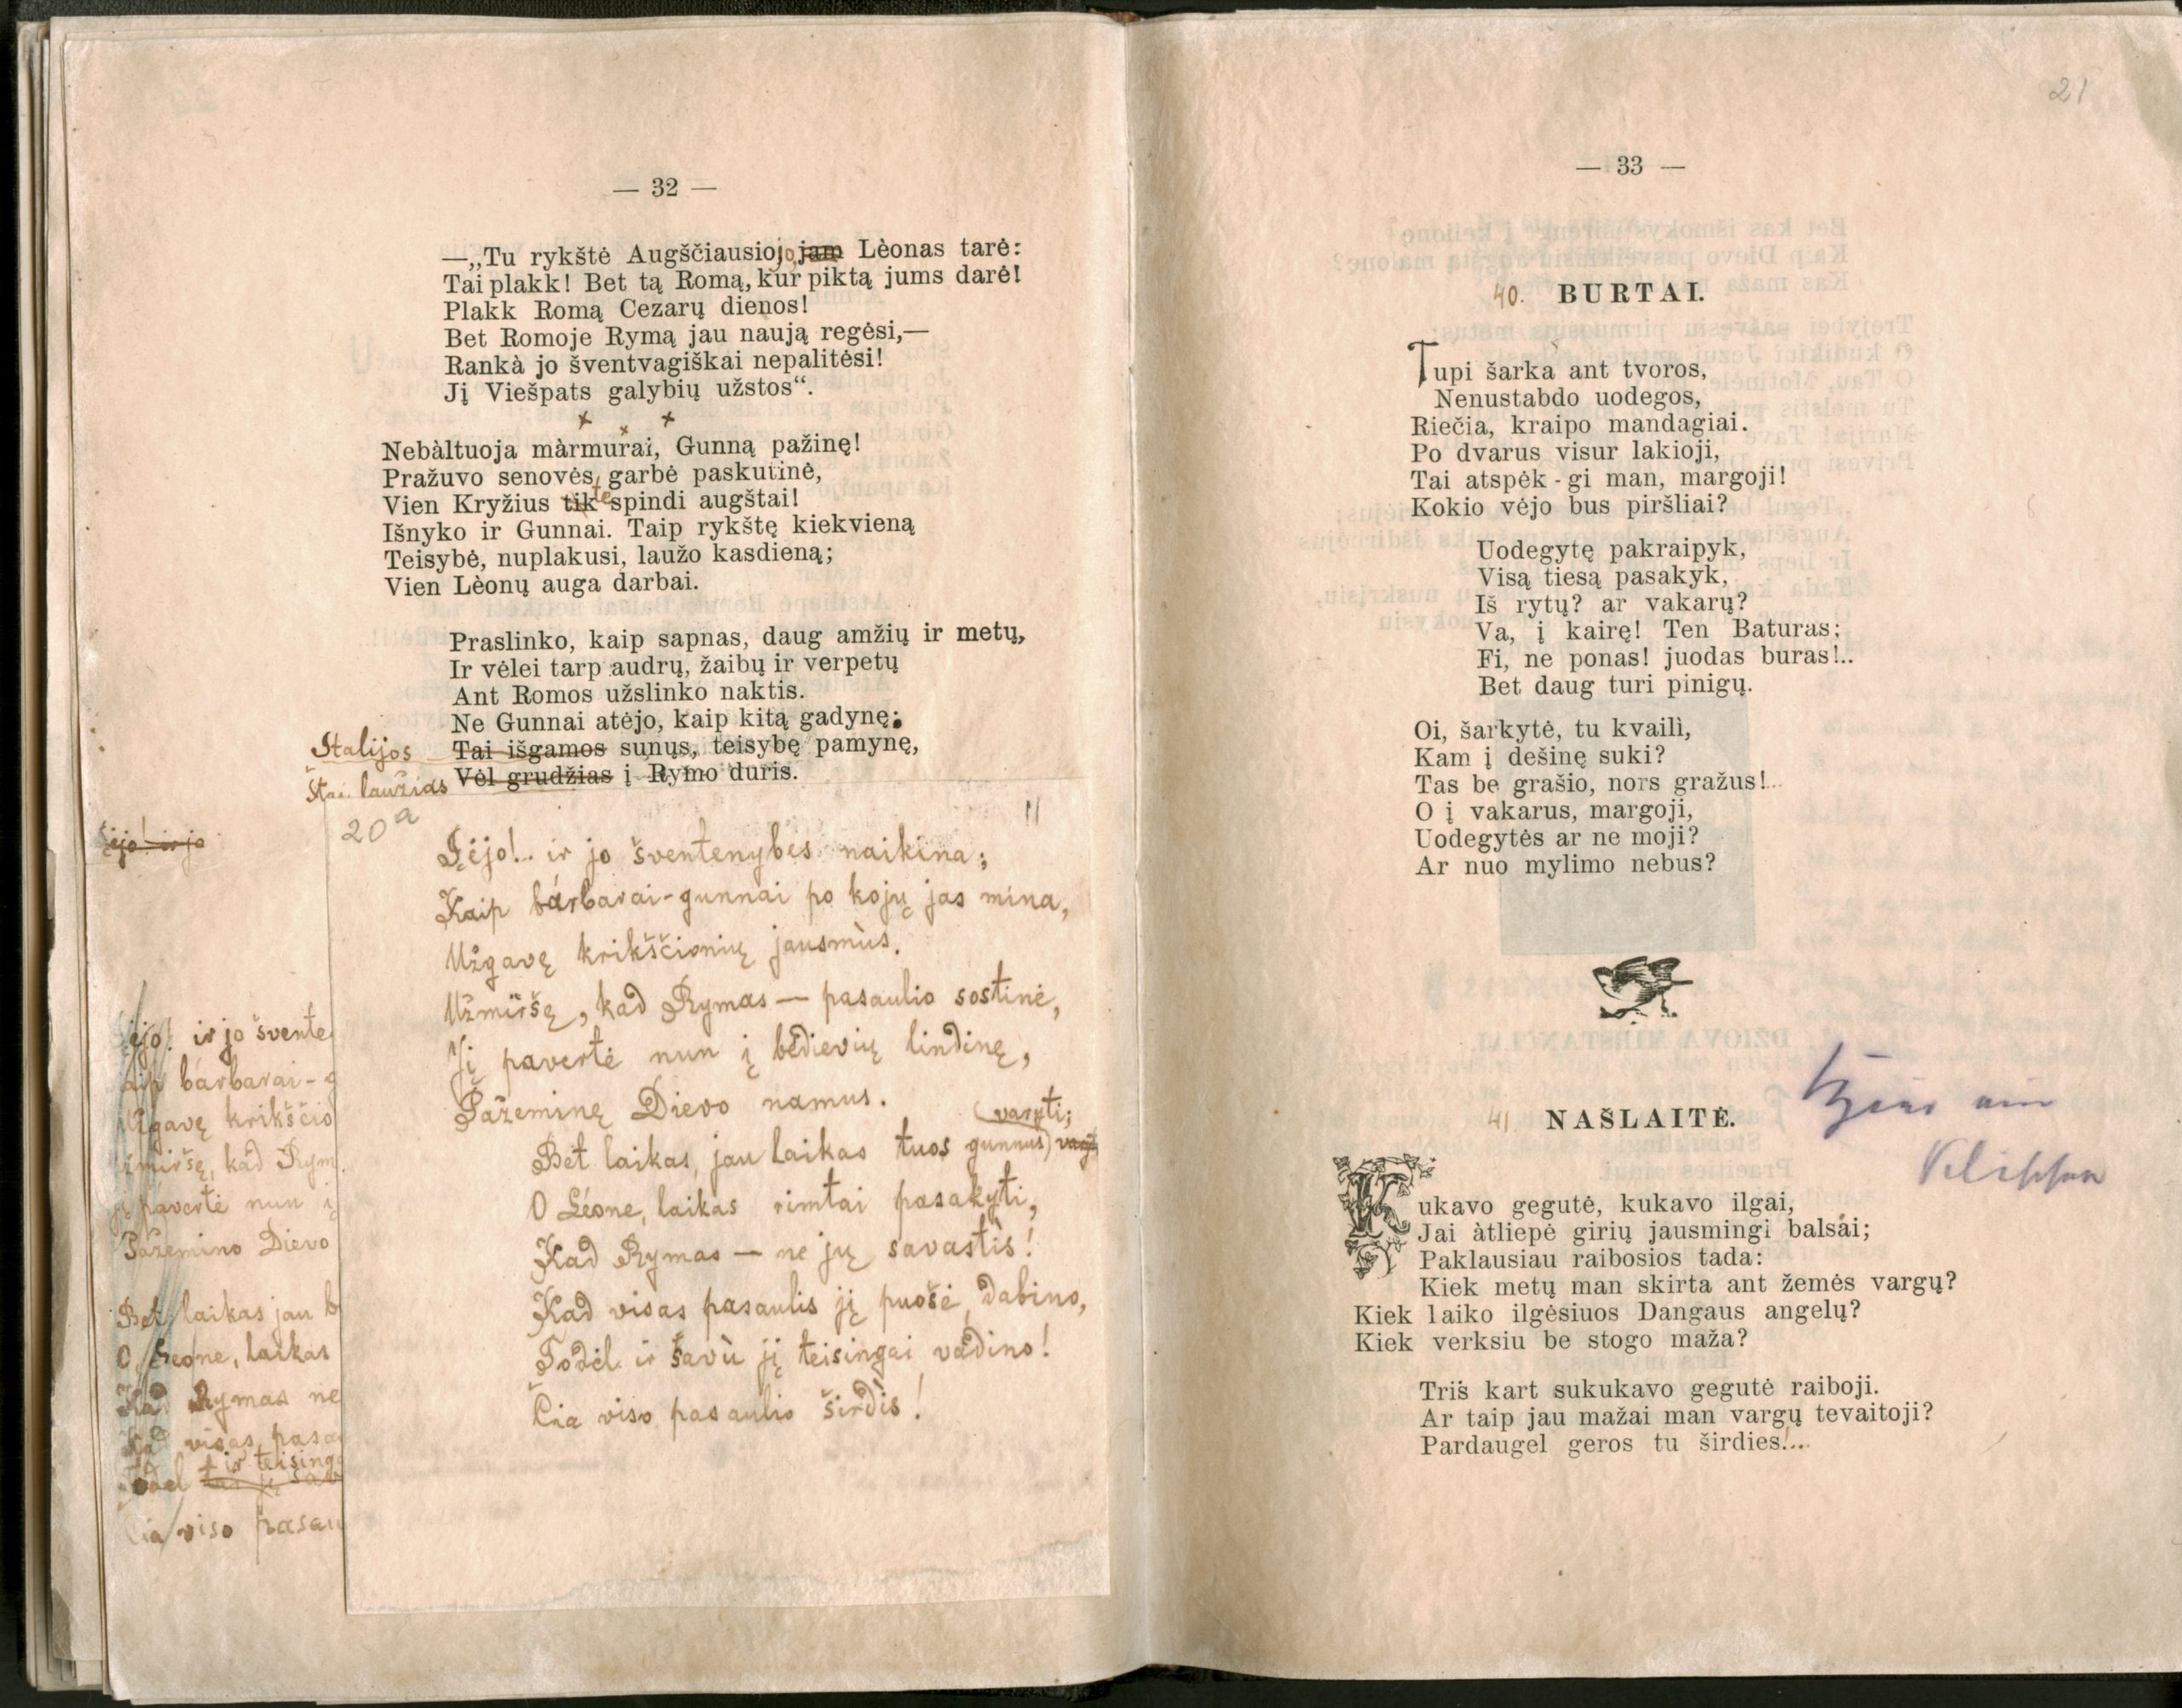 — 32 —
—„Tu rykštė Augščiausiojo, jam Lèonas tarė:
Tai plakk! Bet tą Romą, kur piktą jums darė!
Plakk Romą Cezarų dienos!
Bet Romoje Rymą jau naują regėsi,—
Rankà jo šventvagiškai nepalitėsi!
Jį Viešpats galybių užstos“.
Nebàltuoja màrmurai, Gunną pažinę!
Pražuvo senovės garbė paskutinė,
Vien Kryžius tik te spindi augštai!
Išnyko ir Gunnai. Taip rykštę kiekvieną
Teisybė, nuplakusi, laužo kasdieną;
Vien Lèonų auga darbai.
Praslinko, kaip sapnas, daug amžių ir metų,
Ir vėlei tarp audrų, žaibų ir verpetų
Ant Romos užslinko naktis.
Ne Gunnai atėjo, kaip kitą gadynę:
Italijos Tai išgamos sunųs, teisybę pamynę,
Štai laužias Vėl grudžias į Rymo duris.
20a
11
Įėjo!.. ir jo šventenybes naikina;
Kaip bárbarai-gunnai po kojų jas mina,
Užgavę krikščionių jausmùs.
Užmiršę, kad Rymas — pasaulio sostinė,
Jį pavertė nun į bedievių lindinę,
Pažeminę Dievo namus.
Bet laikas, jau laikas tuos gunnus varyti;
O Léone, laikas rimtai pasakyti,
Kad Rymas — ne jų savastis!
Kad visas pasaulis jį puošė, dabino,
Todėl ir savù jį teisingai vadino!
Čia viso pasaulio širdis!
įėjo! ir jo
įėjo! ir jo švente
aip bárbarai-g
Užgavę krikščio
žmiršę, kad Rym
jį pavertė nun į
Pažemino Dievo
Bet laikas jau
O Leone, laikas
Kad Rymas ne
Kad visas pasa
ir teising
Todėl
ia viso pasau
21
— 33 —
40. BURTAI.
Tupi šarka ant tvoros,
Nenustabdo uodegos,
Riečia, kraipo mandagiai.
Po dvarus visur lakioji,
Tai atspėk-gi man, margoji!
Kokio vėjo bus piršliai?
Uodegytę pakraipyk,
Visą tiesą pasakyk,
Iš rytų? ar vakarų?
Va, į kairę! Ten Baturas;
Fi, ne ponas! juodas buras!..
Bet daug turi pinigų.
Oi, šarkytė, tu kvailì,
Kam į dešinę suki?
Tas be grašio, nors gražus!..
O į vakarus, margoji,
Uodegytės ar ne moji?
Ar nuo mylimo nebus?
41. NAŠLAITĖ.
Kukavo gegutė, kukavo ilgai,
Jai àtliepė girių jausmingi balsai;
Paklausiau raibosios tada:
Kiek metų man skirta ant žemės vargų?
Kiek laiko ilgėsiuos Dangaus angelų?
Kiek verksiu be stogo maža?
Tris kart sukukavo gegutė raiboji.
Ar taip jau mažai man vargų tevaitoji?
Pardaugel geros tu širdies!...